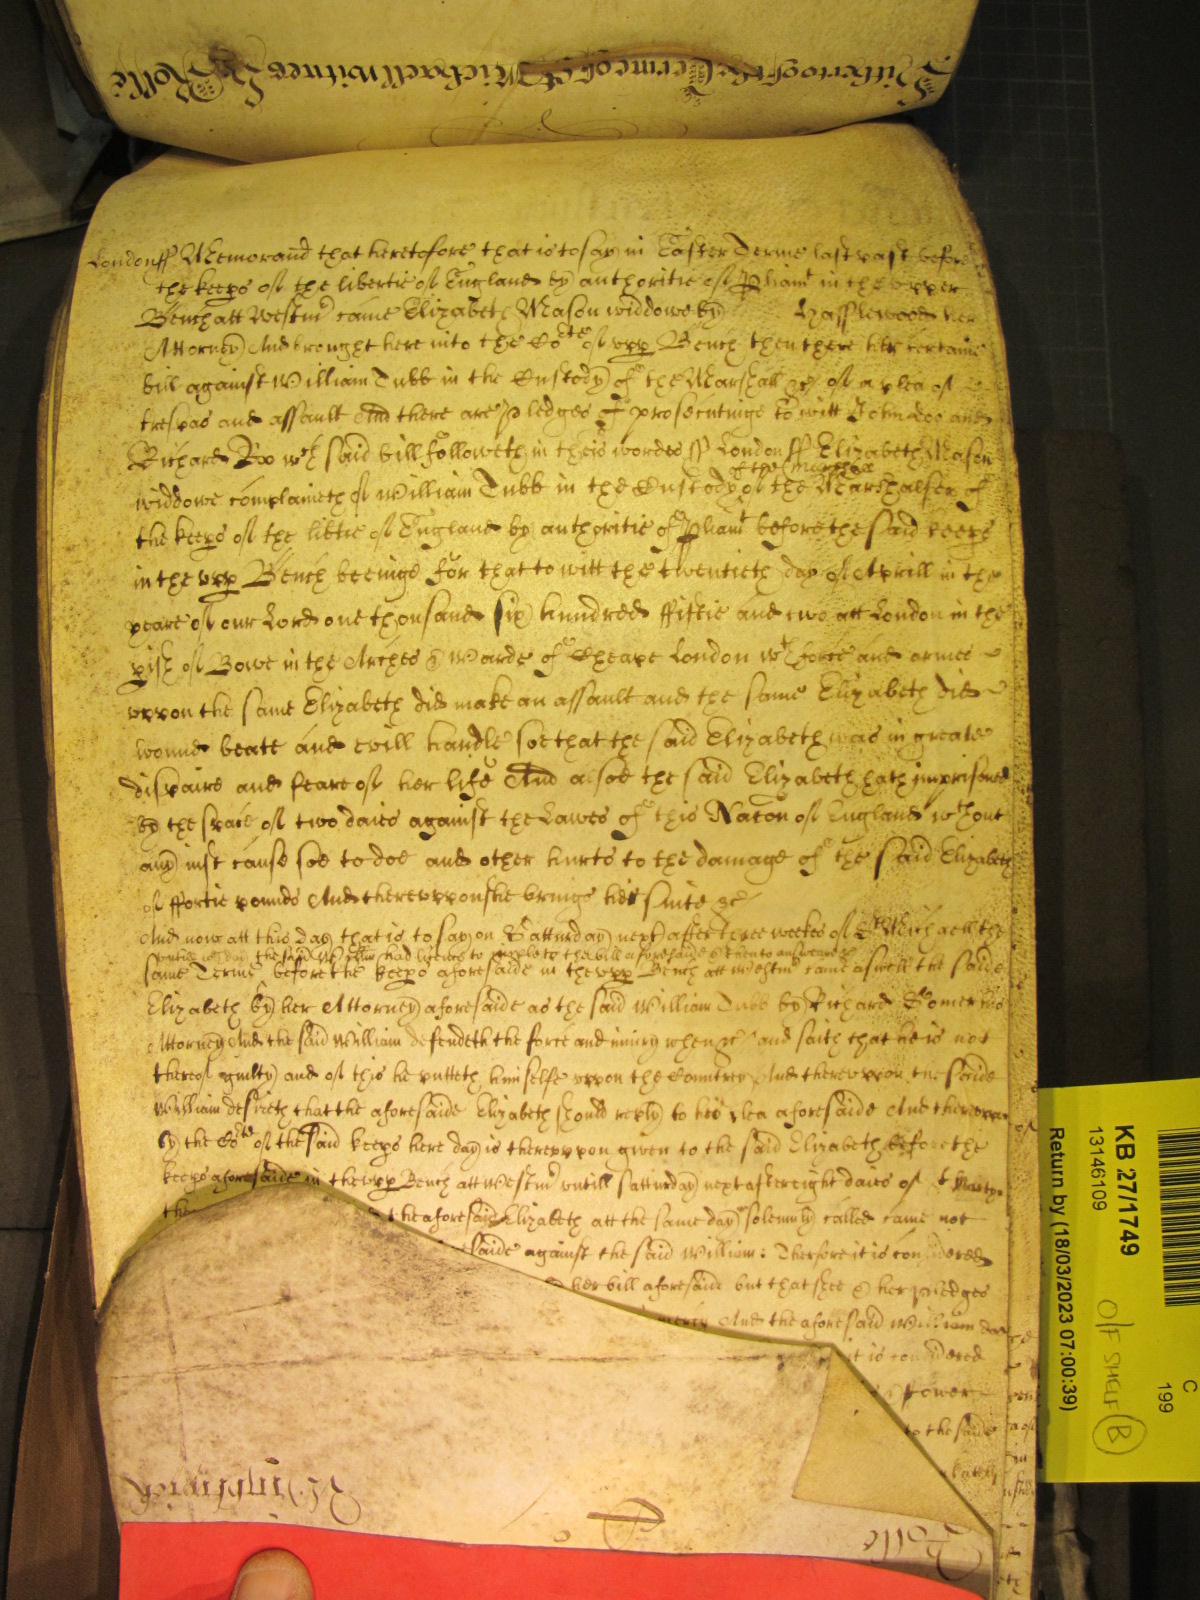 Hitherto of the Terme of St Michaell witnes H Rolle
London ss Memorand that heretofore that is to say in Easter Terme last past before
the keeps of the libertie of England by authoritie of Pliamt in the upper
Bench att Westmr came Elizabeth Mason widdowe by Hasslewood her
Attorney And brought here into the Cote of upp Bench then there her certaine
bill against William Tubb in the Custody of the Marshall &c of a plea of
trespas and assault And there are pledges of prosecutinge to witt John doo and
Richard Roo wch said bill followeth in theis wordes ss London ss Elizabeth Mason
widdowe complaineth of William Tubb in the Custody of the Marshalsea of
the keeps of the libtie of England by authoritie of Pliamt before the said keeps
in the upp Bench beeinge For that to witt the twentieth day of Aprill in the
yeare of our Lord one thousand six hundred fiftie and two att London in the
pish of Bowe in the Arches & Warde of Cheape London wth force and armes
uppon the same Elizabeth did make an assault and the same Elizabeth did
wound beate and evill handle soe that the said Elizabeth was in greate
dispaire and feare of her life And alsoe the said Elizabeth hath imprisoned
by the space of two daies against the Lawes of this Nacon of England wthout
any iust cause soe to doe and other hurts to the damage of the said Elizabeth
of ffortie pounds And thereuppon she brings her suite &c
And now att this day that is to say on Satturday next after three weekes of St Michaell the
untill wch day the said Wllm had licence to imparle to the bill aforesaide & then to answeare &c
same Terme before the keeps aforesaide in the upp Bench att Westmr came aswell the saide
Elizabeth by her Attorney aforesaide as the said William Tubb by Richard Somer his
Attorney And the said William defendeth the force and iniury when &c and saith that he is not
thereof guilty and of this he putteth himselfe uppon the Countrey And thereuppon the saide
William desireth that the aforesaide Elizabeth should reply to his plea aforesaide And thereuppon
by the Cote of the said keeps here day is thereuppon given to the said Elizabeth before the
keeps aforesaide in the upp Bench att Westmr untill Satturday next after eight daies of St Martyn
the aforesaid Elizabeth att the same day solemnly called came not
saide against the said William: Therfore it is considered
her bill aforesaide but that shee & her pledges
mercy And the aforesaid William
it is considered
power
to the saide
Rolle
KB 27/1749
13146109
Return by (18/03/2023 07:00:39)
O/F SHELF B
C
199